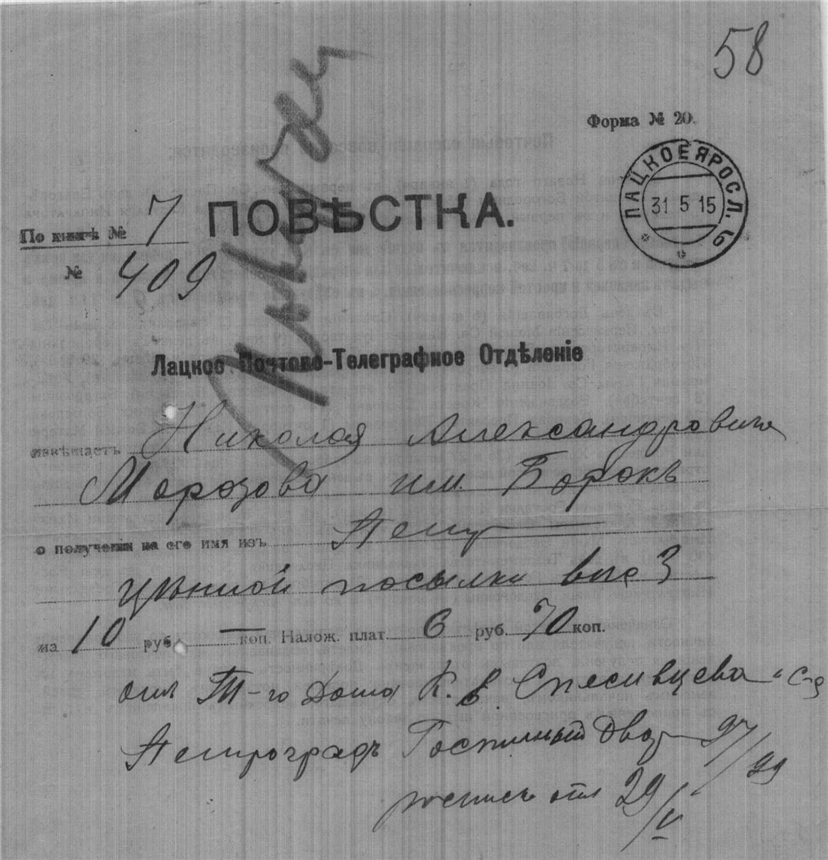 58
Форма № 20.
ЛАЦКОЕ ЯРОСЛ. Г
31 5 15
По книгѣ № 7
ПОВѢСТКА.
№ 409
Лацкое Почтово-Телеграфное Отдѣленіе
извѣщаетъ Николая Александровича
Морозова им. Борокъ
о полученіи на его имя изъ Петр
цѣнной посылки вѣс 3
на 10 руб. — коп. Налож. плат. 6 руб. 70 коп.
отъ Т-го Дома К. В. Спесивцева и С-я
Петроградъ Гостиный Двор 97/99
роспись отъ 29/V